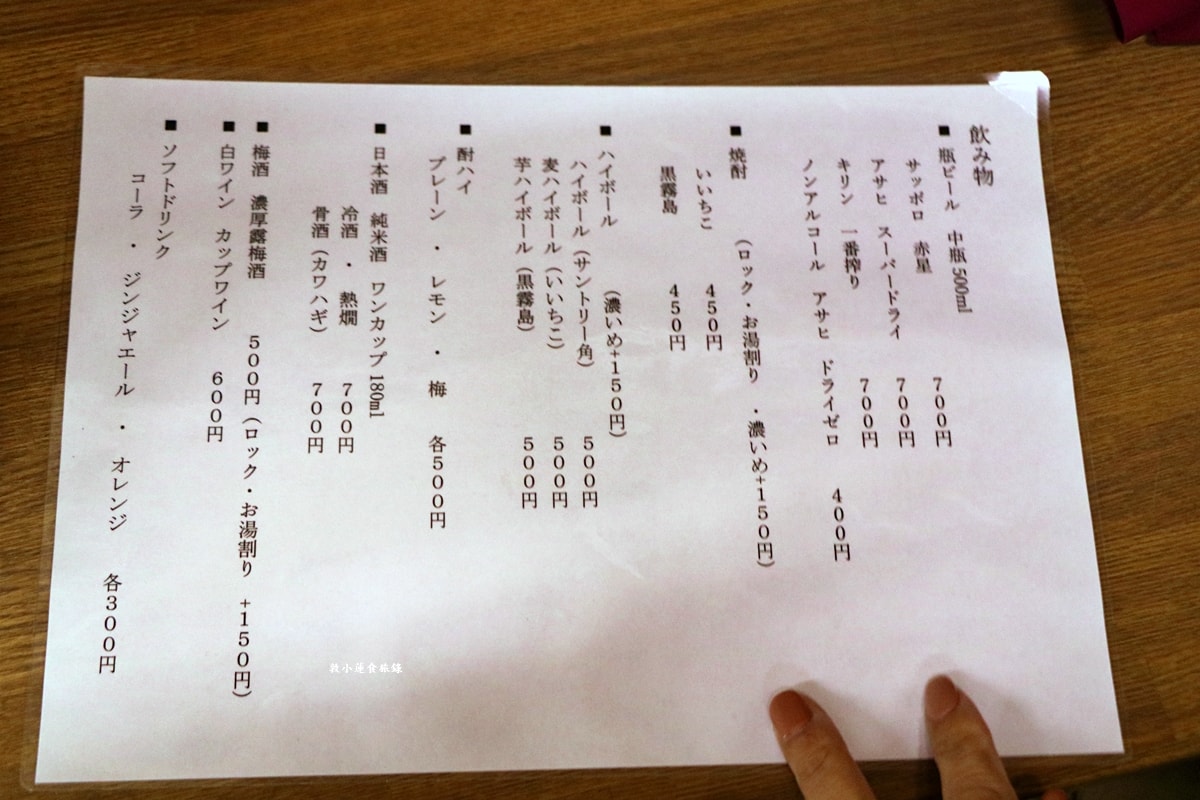 飲み物
■ 瓶ビール 中瓶 500ml
サッポロ 赤星 700円
アサヒ スーパードライ 700円
キリン 一番搾り 700円
ノンアルコール アサヒ ドライゼロ 400円
■ 焼酎 (ロック・お湯割り ・濃いめ+150円)
いいちこ 450円
黒霧島 450円
■ ハイボール (濃いめ+150円)
ハイボール (サントリー角) 500円
麦ハイボール (いいちこ) 500円
芋ハイボール (黒霧島) 500円
■ 酎ハイ
プレーン ・ レモン ・ 梅 各500円
■ 日本酒 純米酒 ワンカップ 180ml
冷酒 ・ 熱燗 700円
骨酒 (カワハギ) 700円
■ 梅酒 濃厚露梅酒 500円 (ロック・お湯割り +150円)
■ 白ワイン カップワイン 600円
■ ソフトドリンク
コーラ ・ ジンジャエール ・ オレンジ 各300円
小蓮食旅錄